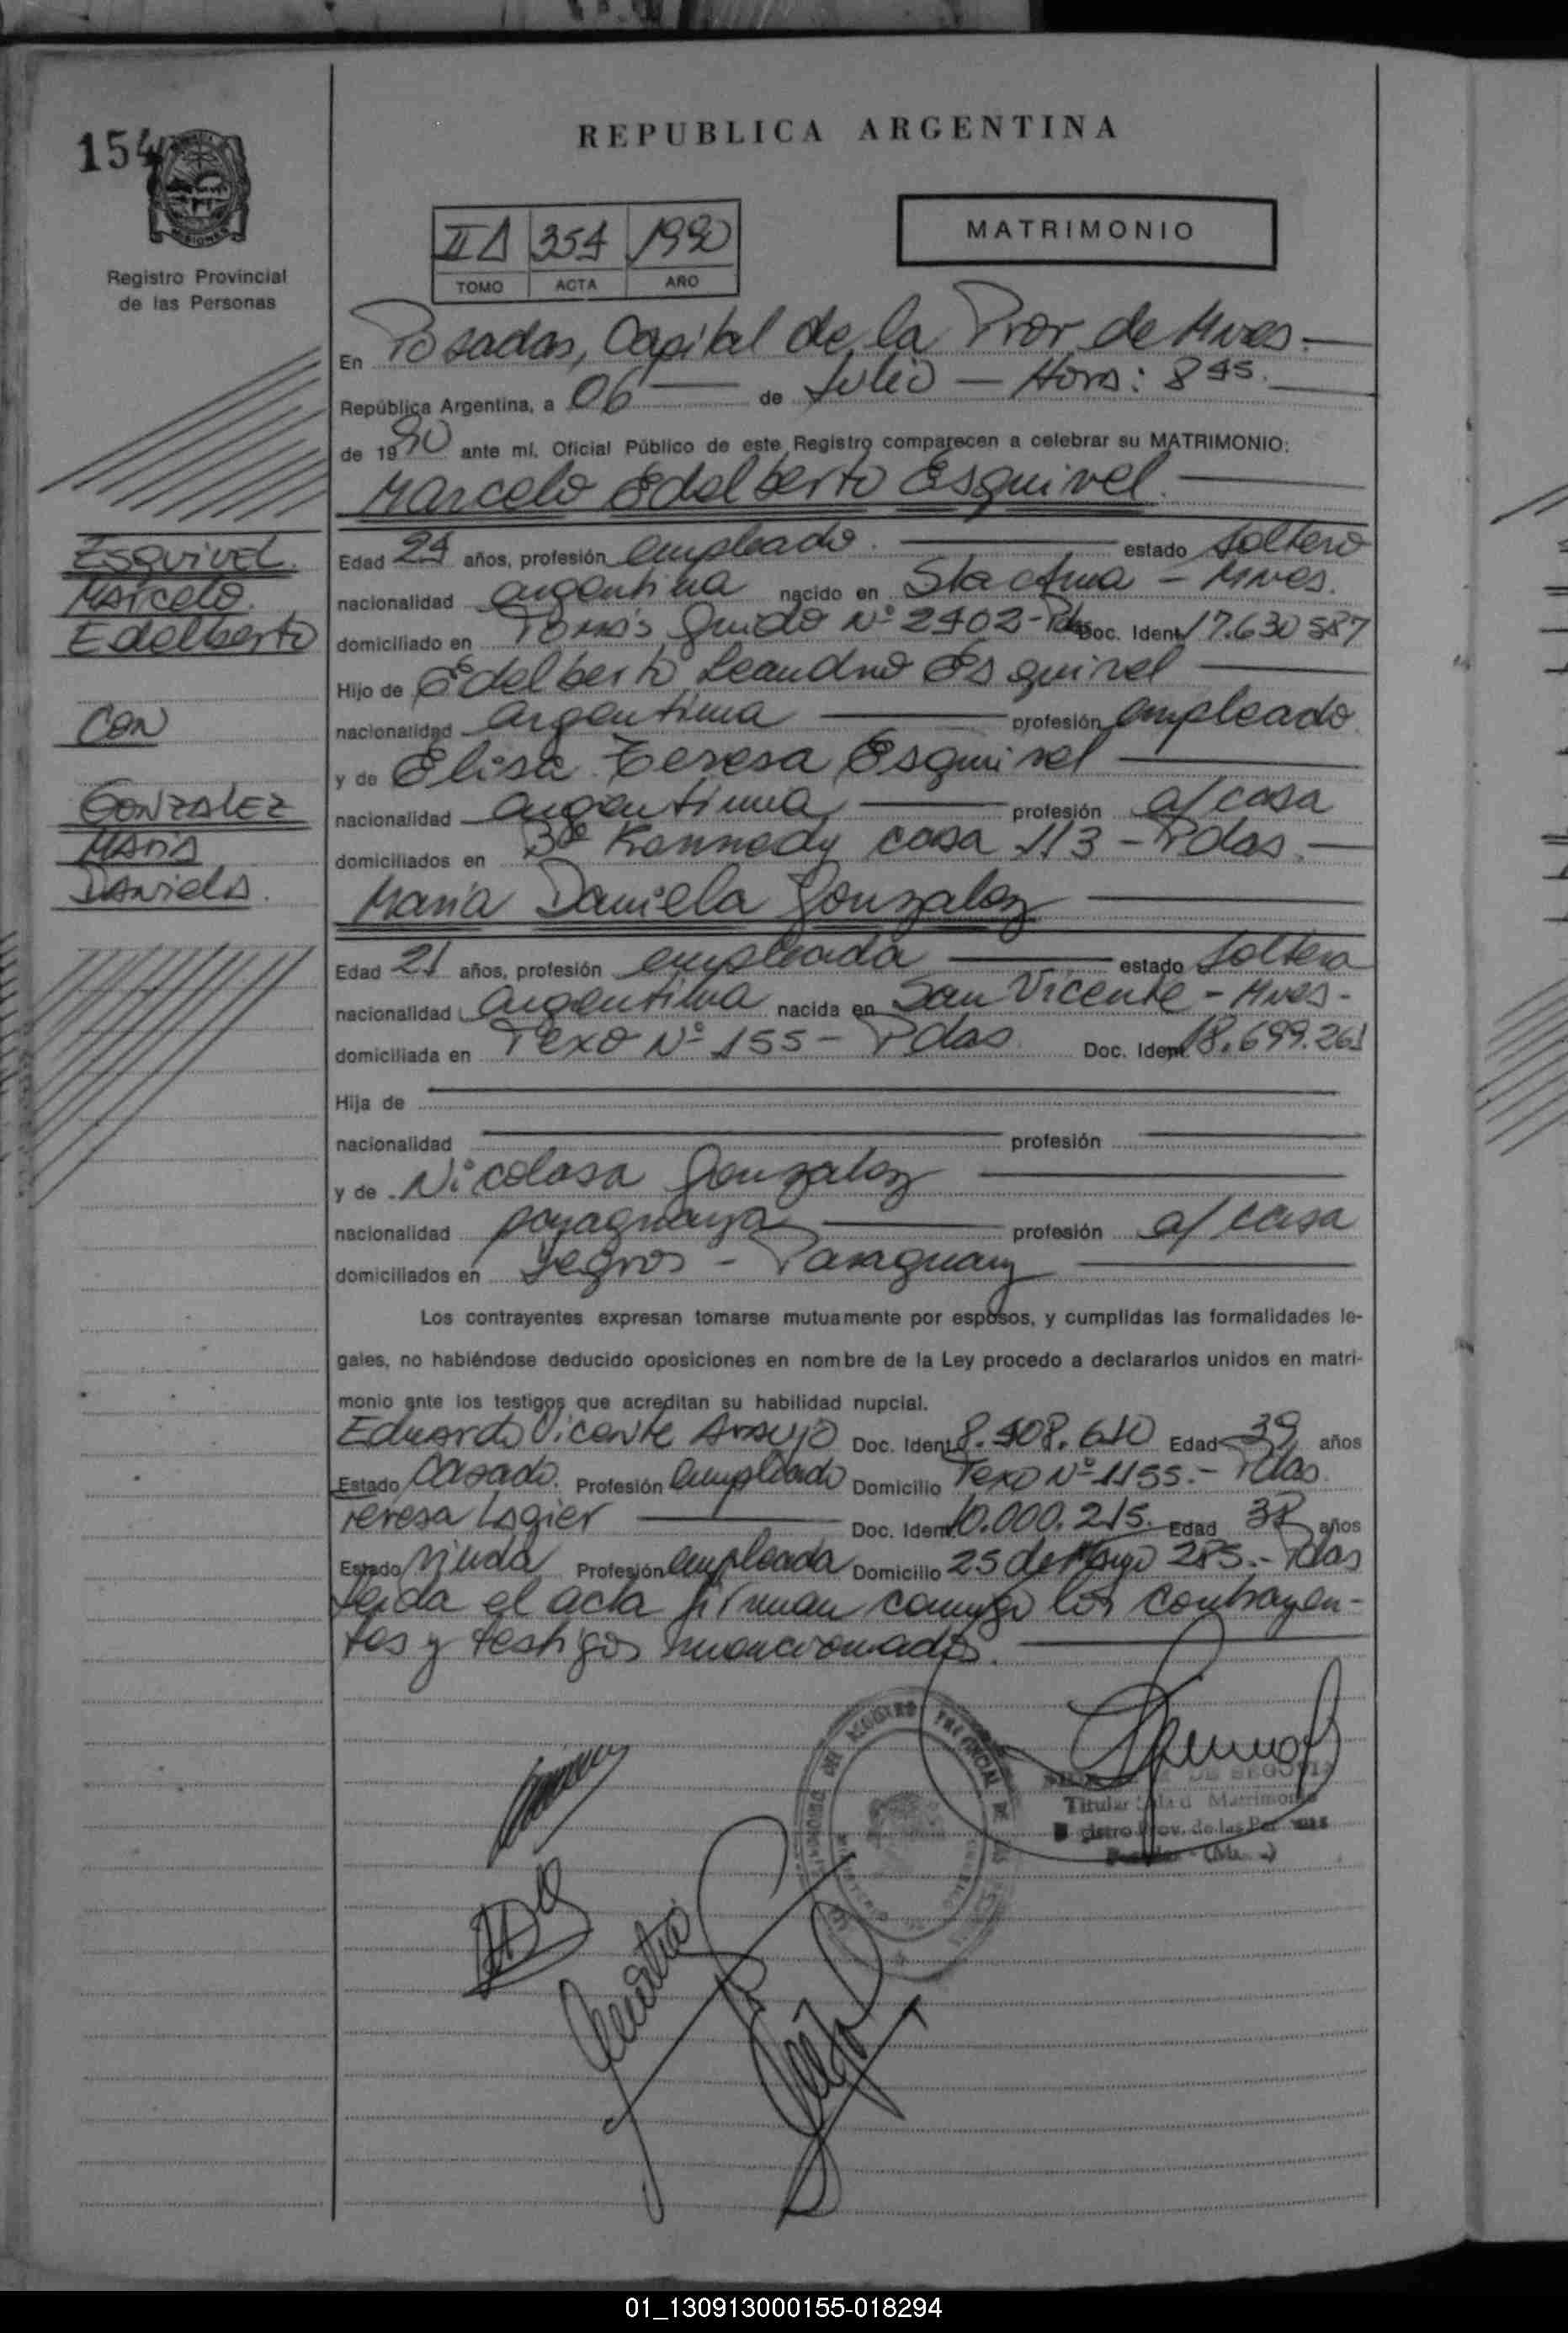 154
MISIONES
Registro Provincial
de las Personas
REPUBLICA ARGENTINA
MATRIMONIO
II A 354 1990
TOMO ACTA AÑO
En Posadas, Capital de la Prov de Mnes.
República Argentina, a 06 de Julio - Hora: 8 45.
de 1990 ante mí, Oficial Público de este Registro comparecen a celebrar su MATRIMONIO:
Marcelo Edelberto Esquivel.
ESQUIVEL.
Marcelo.
Edelberto
CON
GONZALEZ
María
Daniela.
Edad 24 años, profesión empleado. estado soltero
nacionalidad argentina nacido en Sta Ana - Mnes.
domiciliado en Tomás Guido Nº 2402 - Pdas Doc. Ident. 17.630 587
Hijo de Edelberto Leandro Esquivel
nacionalidad argentina profesión empleado.
y de Elisa Teresa Esquivel
nacionalidad argentina profesión a/casa
domiciliados en Bº Kennedy casa 113 - Pdas.
María Daniela Gonzalez
Edad 21 años, profesión empleada estado soltera
nacionalidad argentina nacida en San Vicente - Mnes -
domiciliada en Texo Nº 155 - Pdas. Doc. Ident. 18.699.261
Hija de
nacionalidad profesión
y de Nicolasa Gonzalez
nacionalidad paraguaya profesión a/casa
domiciliados en Yegros - Paraguay
Los contrayentes expresan tomarse mutuamente por esposos, y cumplidas las formalidades le-
gales, no habiéndose deducido oposiciones en nombre de la Ley procedo a declararlos unidos en matri-
monio ante los testigos que acreditan su habilidad nupcial.
Eduardo Vicente Araujo Doc. Ident. 8.408.610 Edad 39 años
Estado Casado. Profesión empleado Domicilio Texo Nº 1155.- Pdas.
Teresa Logier Doc. Ident. 10.000.215. Edad 38 años
Estado viuda Profesión empleada Domicilio 25 de Mayo 285.- Pdas
Leida el acta firman conmigo los contrayen-
tes y testigos mencionados.
DE SEGOVIA
Titular Sala d Matrimonio
gistro Prov. de las Per nas
01_130913000155-018294